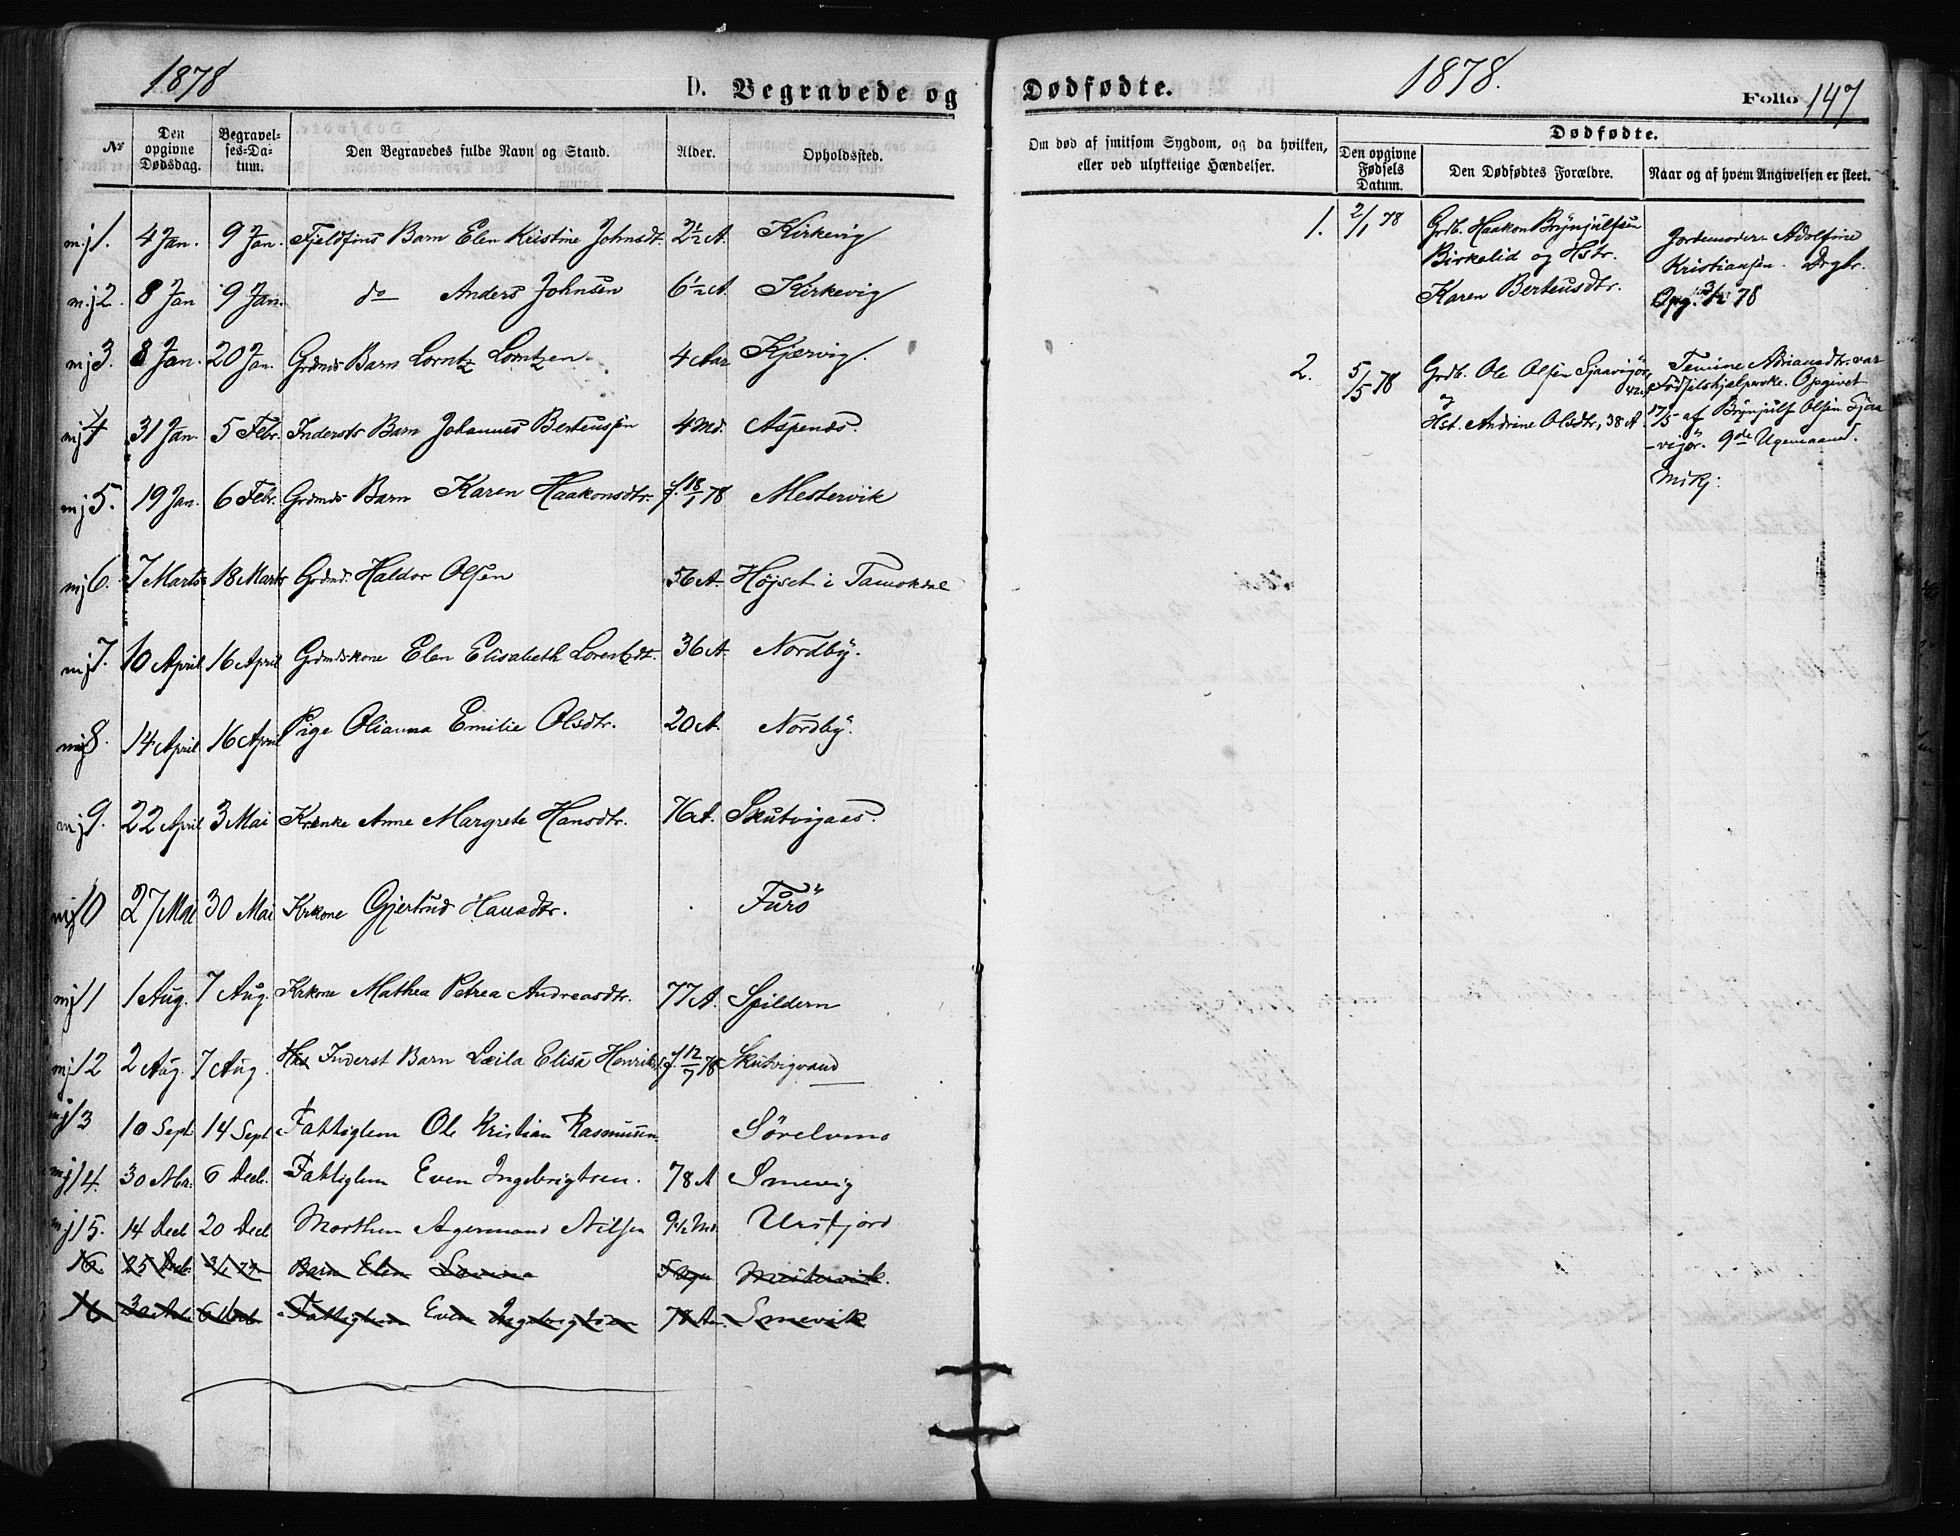 1878
D. Begravede og
№ Den opgivne Dødsdag. Begravelses-Datum. Den Begravedes fulde Navn og Stand. Alder. Opholdssted.
mj 1. 4 Jan. 9 Jan. Fjeldfins Barn Elen Kristine Johnsdt. 2½ A. Kirkevig
mj 2. 8 Jan 9 Jan. do Anders Johnsen 6½ A. Kirkevig
mj 3. 8 Jan. 20 Jan. Grdmds Barn Lorntz Lorntzen. 4 Aar Kjærvig.
mj 4 31 Jan. 5 Febr. Inderstr Barn Johannes Berteussen 4 Md. Aspenæs.
mj 5. 19 Jan. 6 Febr. Grdmds Barn Karen Haakonsdtr. f. 18/1 78 Mestervik
mj 6. 7 Marts 18 Marts Grdmd. Haldor Olsen 56 A. Højset i Tamokdal
mj 7. 10 April 16 April Grdmdskone Elen Elisabeth Lorentzdt. 36 A. Nordby.
mj 8. 14 April 16 April Pige Olianna Emilie Olsdtr. 20 A. Nordby.
mj 9. 22 April 3 Mai Krenke Anne Margrete Hansdtr. 76 A. Skutvigaas.
mj 10 27 Mai 30 Mai Krkone Gjertrud Hansdtr. Furö
mj 11 1 Aug. 7 Aug. Krkone Mathea Petrea Andreasdtr. 77 A. Spildern
mj 12 2 Aug. 7 Aug. Inderst Barn Læila Elisa Henriks f. 12/7 78 Skutvigvand
mj 13 10 Sept 14 Sept Fattiglem Ole Kristian Rasmussen Sörelvmo
mj 14. 30 Nbr. 6 Decb. Fattiglem Even Ingebrigtsen. 78 A Smevig
mj 15. 14 Decb 20 Decb Morthen Agermand Nilsen 9½ Md. Ursfjord
16. 25 Decb. 3/1 79. Barn Elen Mestervik.
16 30 Nbr 6 Decb Fattiglem Even Ingebrigtsen 78 Aar Smevik
Dødfødte.
1878.
Folio 147
Om død af smitsom Sygdom, og da hvilken, eller ved ulykkelige Hændelser.
Dødfødte.
Den opgivne Fødsels Datum. Den Dødfødtes Forældre. Naar og af hvem Angivelsen er skeet.
1. 2/1 78 Grdb. Haakon Brynjulfsen Jordemoder Adolfine
Birkelid og Hstr. Kristiansen. Drgbr.
Karen Berteusdtr. Opg. 3/2 78
2. 5/5 78 Grdb. Ole Olsen Sjaavigör, 42 A Temine Adriansdtr. var
og Födselshjelperske. Opgivet
Hst. Andrine Olsdtr, 38 A. 17/5 af Brynjulf Olsen Sjaa
-vigör. 9de Ugemaaned.
Mikj: